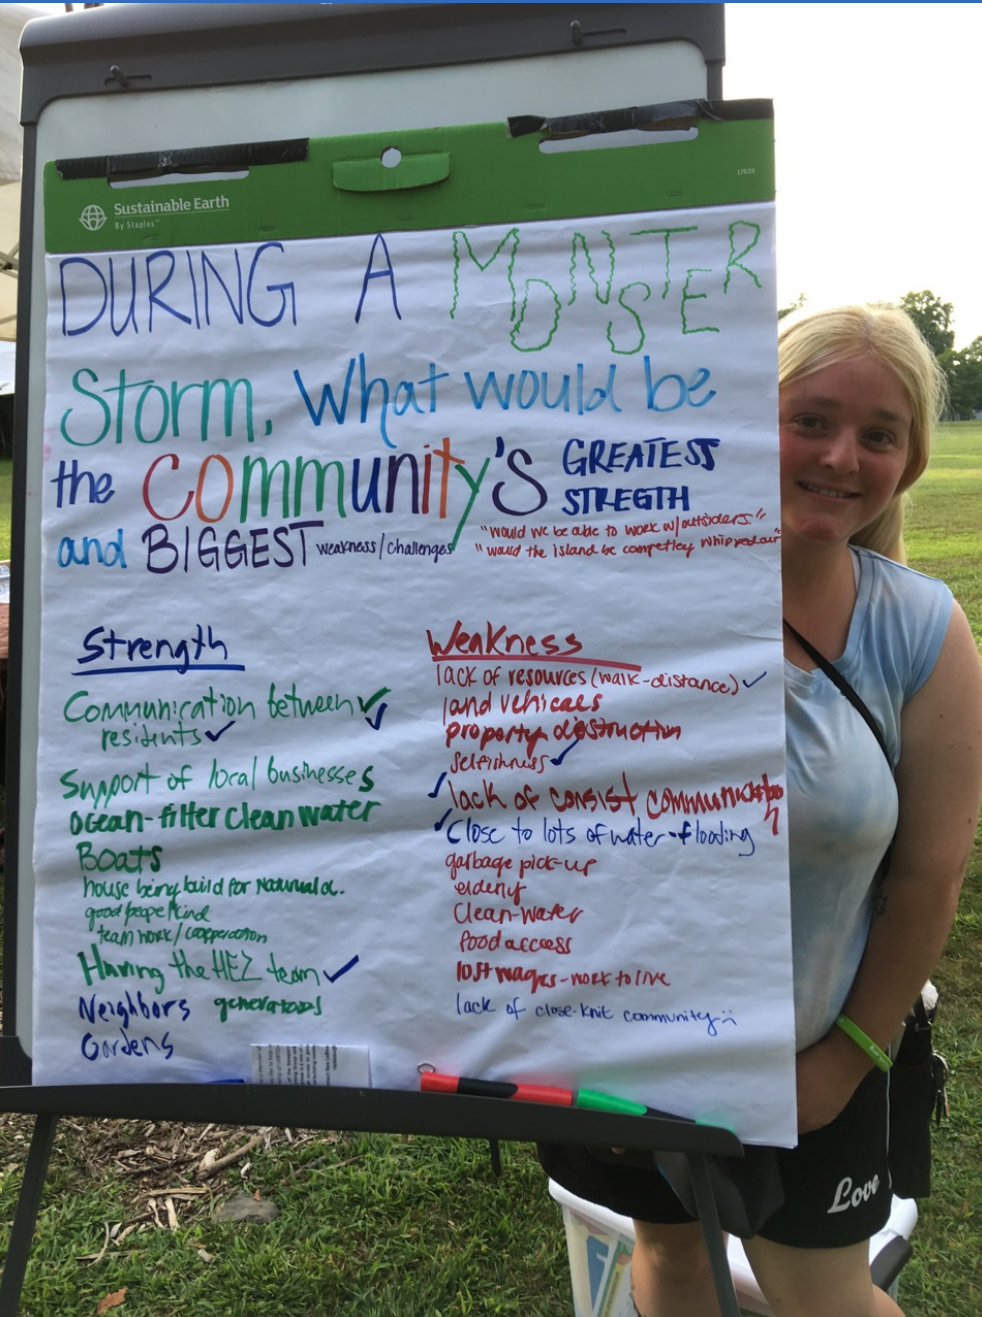 Sustainable Earth
By Staples™
17620
DURING A MONSTER
Storm, What would be
the Community's GREATEST
STREGTH
and BIGGEST weakness/challenges
"would we be able to work w/outsiders"
"would the island be competley whipped out"
Strength
Communication between
residents
Support of local businesses
ocean-filter clean water
Boats
house being build for Natural d.
good peope/kind
team work/cooperation
Having the HEZ team
Neighbors generators
Gardens
Weakness
lack of resources (walk-distance)
land vehicaes
property distruction
Selfishness
lack of consist communication
Close to lots of water-floading
garbage pick-up
elderly
Clean-water
food access
lost wages-work to live
lack of close-knit community
Love